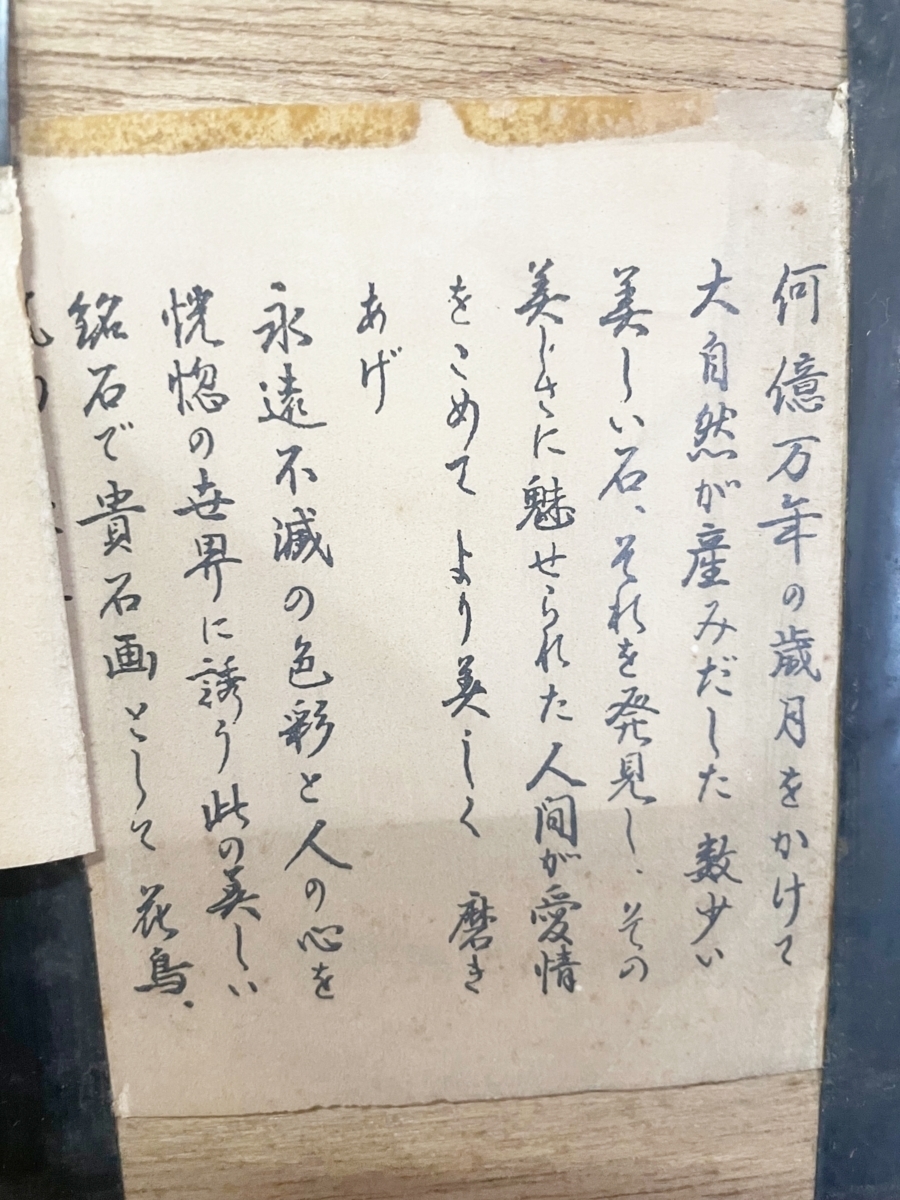 何億万年の歳月をかけて
大自然が産みだした数少い
美しい石、それを発見し、その
美しさに魅せられた人間が愛情
をこめてより美しく磨き
あげ
永遠不滅の色彩と人の心を
恍惚の世界に誘う此の美しい
銘石で貴石画として花鳥、